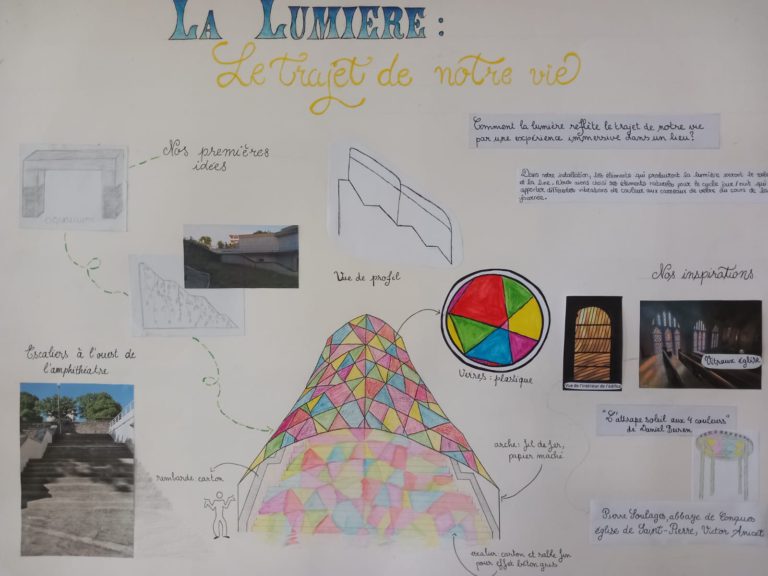 LA LUMIERE :
Le trajet de notre vie
Comment la lumière reflète le trajet de notre vie
par une expérience immersive dans un lieu?
Nos premières
idées
Dans notre installation, les éléments qui produiront la lumière seront le
et la lune. Nous avons choisi ces éléments naturels pour le cycle jour/nuit qui
apporter différentes vibrations de couleur aux carreaux de verre au cours de la
journée.
Vue de profil
Nos inspirations
Escaliers à l'ouest de
l'amphithéatre
Verres: plastique
Vue de l'intérieur de l'édifice
Vitraux église
"L'attrape soleil aux 4 couleurs"
de Daniel Buren
arche: fil de fer,
papier maché
rambarde: carton
Pierre Soulages, abbaye de Conques
église de Saint-Pierre, Victor Anicet
escalier: carton et sable fin
pour effet béton gris